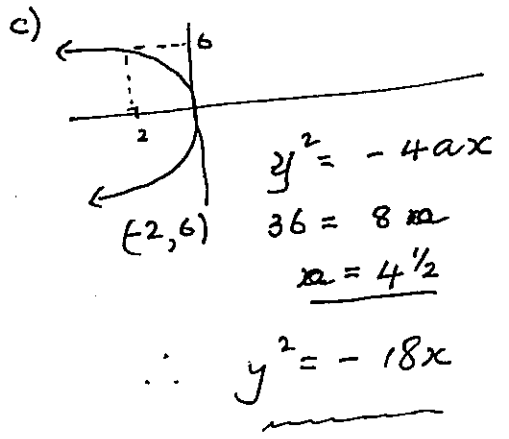 c)
6
2
(-2, 6)
y² = - 4ax
36 = 8a
a = 4 ½
∴ y² = - 18x